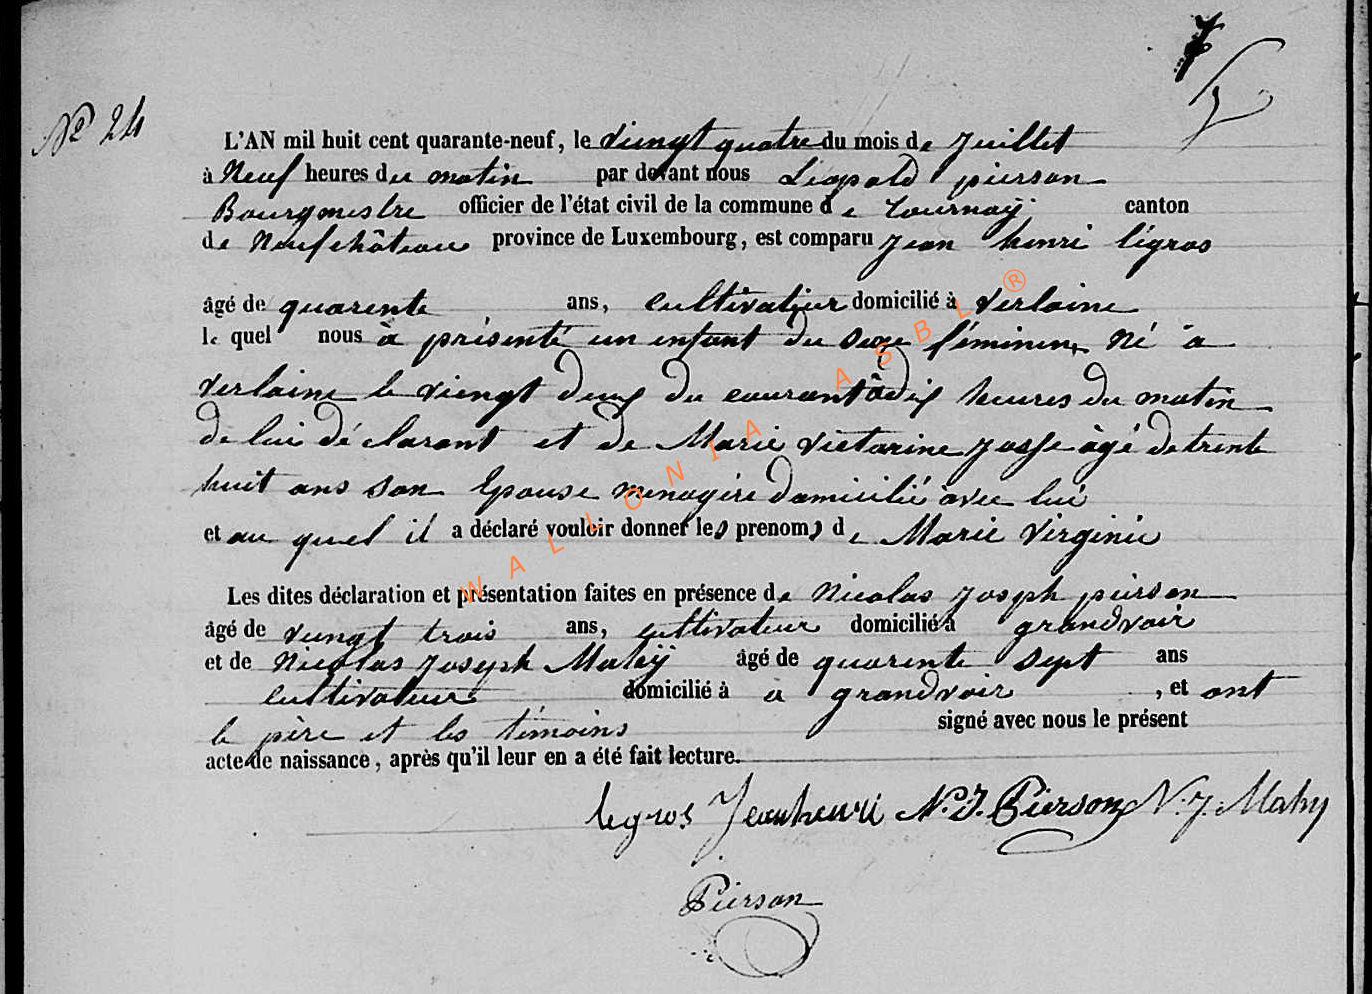 Nº 24
L'AN mil huit cent quarante-neuf, le viengt quatre du mois de juillet
à Neuf heures du matin par devant nous Léopold pierson
Bourgmestre officier de l'état civil de la commune de tournaÿ, canton
de Neufchâteau province de Luxembourg, est comparu jean henri légros
âgé de quarente ans, cultivateur domicilié à verlaine
le quel nous à présenté un enfant du sexe féminine Né à
verlaine le viengt deux du courant à dix heures du matin
de lui déclarant et de Marie victorine josse âgé de trente
huit ans son Epouse menagère domicilié avec lui
et au quel il a déclaré vouloir donner les prenoms de Marie virginie
Les dites déclaration et présentation faites en présence de Nicolas joseph pierson
âgé de viengt trois ans, cultivateur domicilié à grandvoir
et de Nicolas joseph Mahÿ âgé de quarente sept ans
cultivateur domicilié à à grandvoir , et ont
le père et les témoins signé avec nous le présent
acte de naissance, après qu'il leur en a été fait lecture.
legros Jeanhenri N. J. Pierson N. J. Mahy
Pierson
WALLONIA ASBL ®